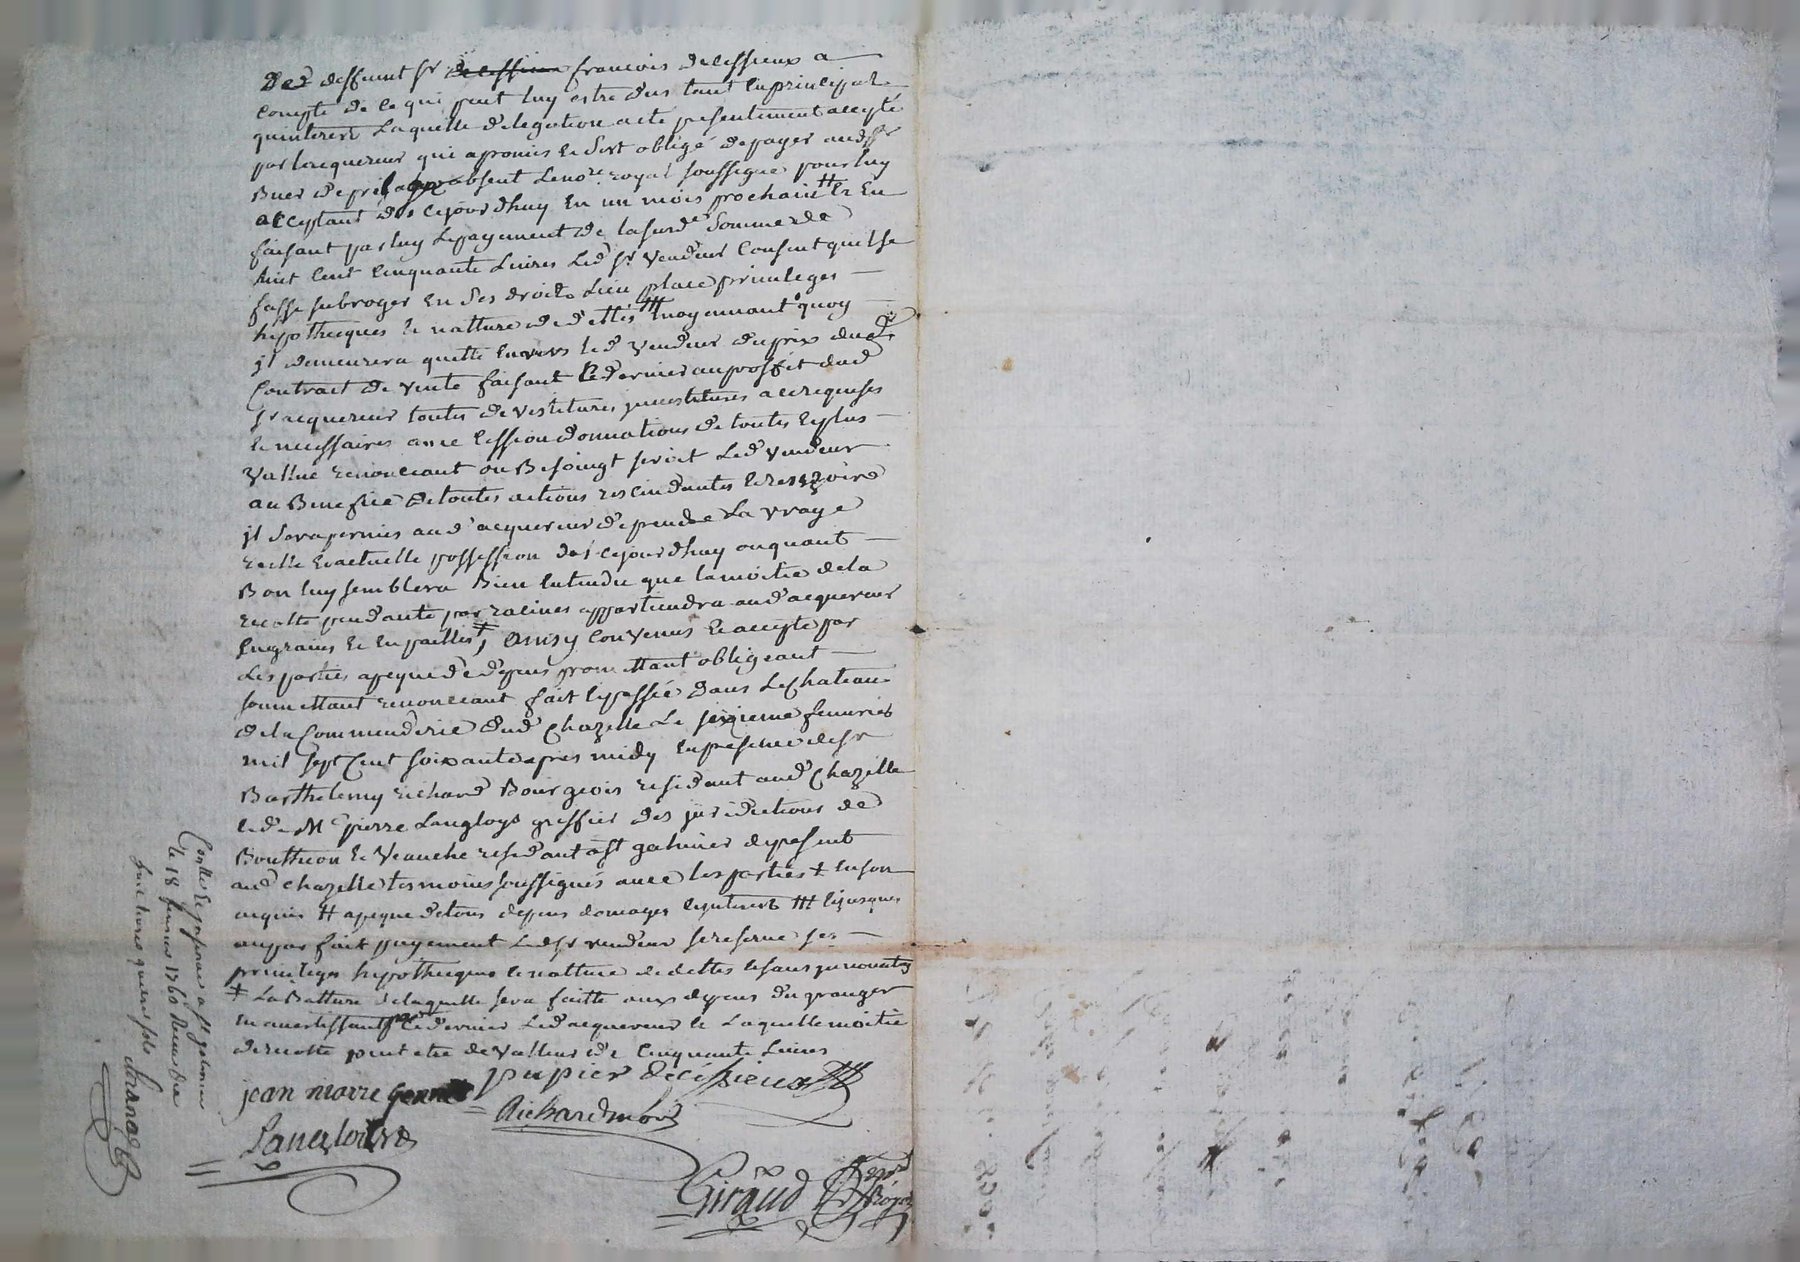 Dud deffunt sr francois decissieux a
compte de ce qui peut luy estre deus tant en principal
qu interest Laquelle delegation a ete presentement accepté
par lacquereur qui a promis et sest obligé de payer aud sr
absent Le no.re royal soussigné pour luy
acceptant des cejourdhuy en un mois prochain # Et En
faisant par luy Le payement de la susd.e somme de
huit cent cinquante Livres Led sr vendeur consent quil se
fasse subroger en ses droits Lieu place privileges
hypotheques et nature de dettes ### moyennant quoy
jl demeurera quitte envers led vendeur du prix dud
contrat de vente faisant Ce dernier au proffit dud
sr acquereur toutes devestitures jnvestitures a ce requises
et necessaires avec cession donnations de toutes et plus
vallue renonceant ou Besoingt seroit Led vendeur
au Benefice de toutes actions rescindantes et rescizoire
jl sera permis aud acquereur de prendre La vraye
reelle et actuelle possession des cejourdhuy ou quant
Bon luy semblera Bien entendu que la moitie de la
recolte pendante par racines appartiendra aud acquereur
en grains et en pailles ‡, Ainsy convenus et accepte par
Les parties a peyne de depens promettant obligeant
soumettant renonceant fait et passée dans Le chateau
de la Commenderie dud Chazelle Le seizieme fevrier
mil sept cent soixante apres midy en presence de sr
Barthelemy richard Bourgeois residant aud Chazelle
et de Me pierre Langloys greffier des juridictions de
Boutheon et Veauche residant a st galmier de present
aud chazelle tesmoins soussignés avec les parties ‡ en son
acquis # a peyne de tous depens domages et jnterest ### et jusques
au parfait payement Led sr vendeur se reserve ses
privileges hypotheques et nature de dettes et sans jnnovation
‡ La Batture de laquelle sera faitte aux depens du granger
en avertissant par ce dernier Led acquereur et Laquelle moitie
de recolte peut etre de valleur de cinquante Livres
jean marre
pupier decissieux
Richard
Langlois
Giraud no.re Royal
Contlle et jnsinué a st galmier
le 18 fevrier 1760 Receu
livres quinze sols